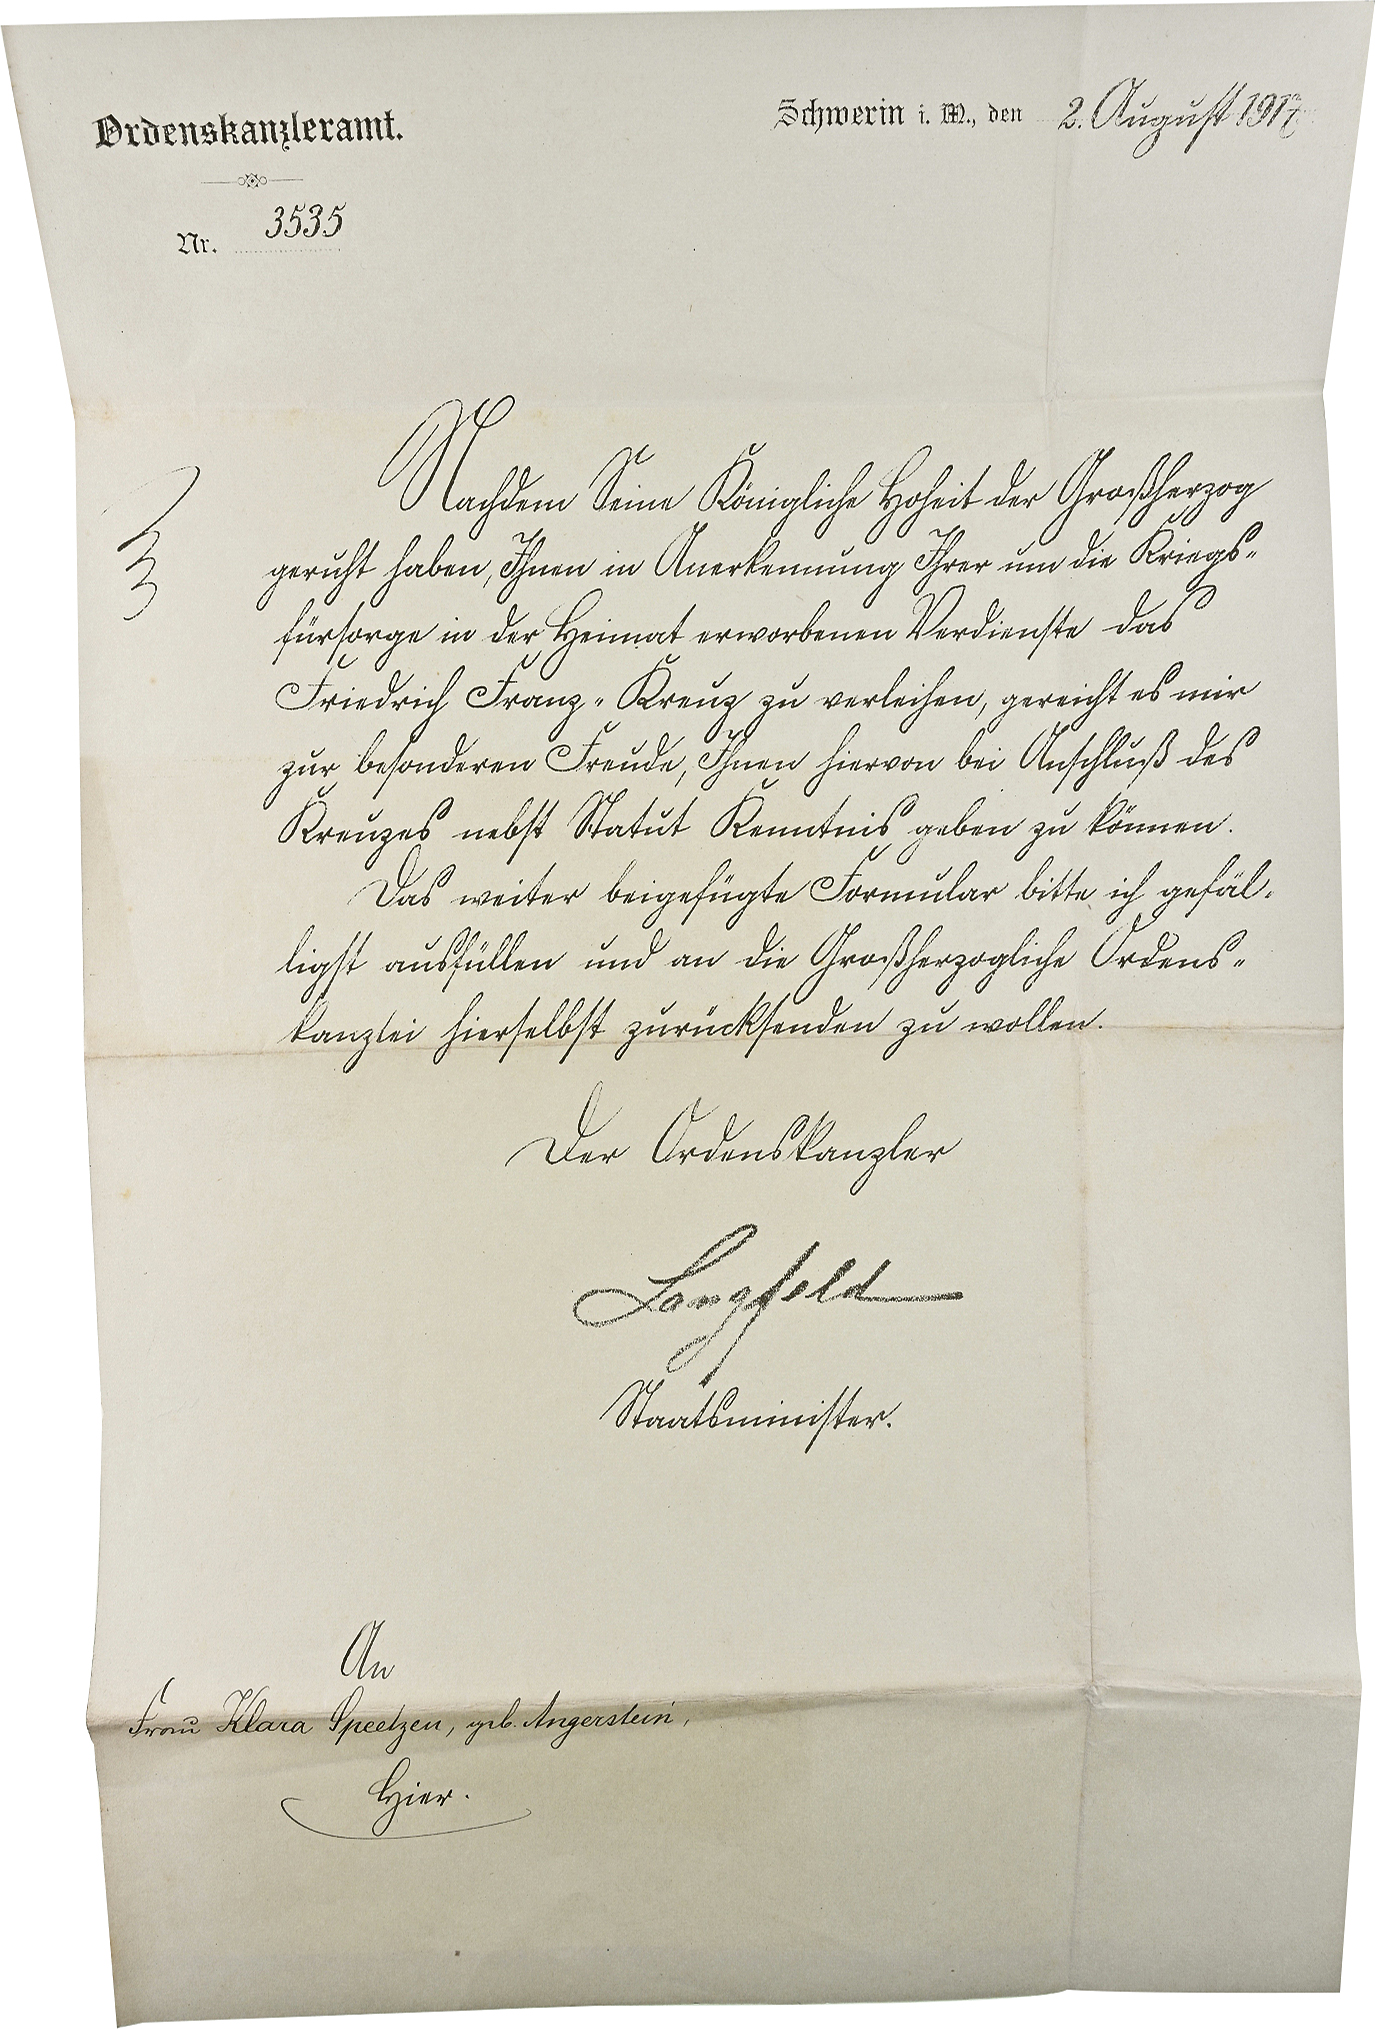 Ordenskanzleramt.
Schwerin i. M., den 2. August 1917
Nr. 3535
Nachdem Seine Königliche Hoheit der Großherzog
geruht haben, Ihnen in Anerkennung Ihrer um die Kriegs-
fürsorge in der Heimat erworbenen Verdienste das
Friedrich Franz-Kreuz zu verleihen, gereicht es mir
zur besonderen Freude, Ihnen hiervon bei Anschluß des
Kreuzes nebst Statut Kenntnis geben zu können.
Das weiter beigefügte Formular bitte ich gefäl-
ligst ausfüllen und an die Großherzogliche Ordens-
kanzlei hierselbst zurücksenden zu wollen.
Der Ordenskanzler
Langfeld
Staatsminister.
An
Frau Klara Speetzen, geb. Angerstein,
Hier.